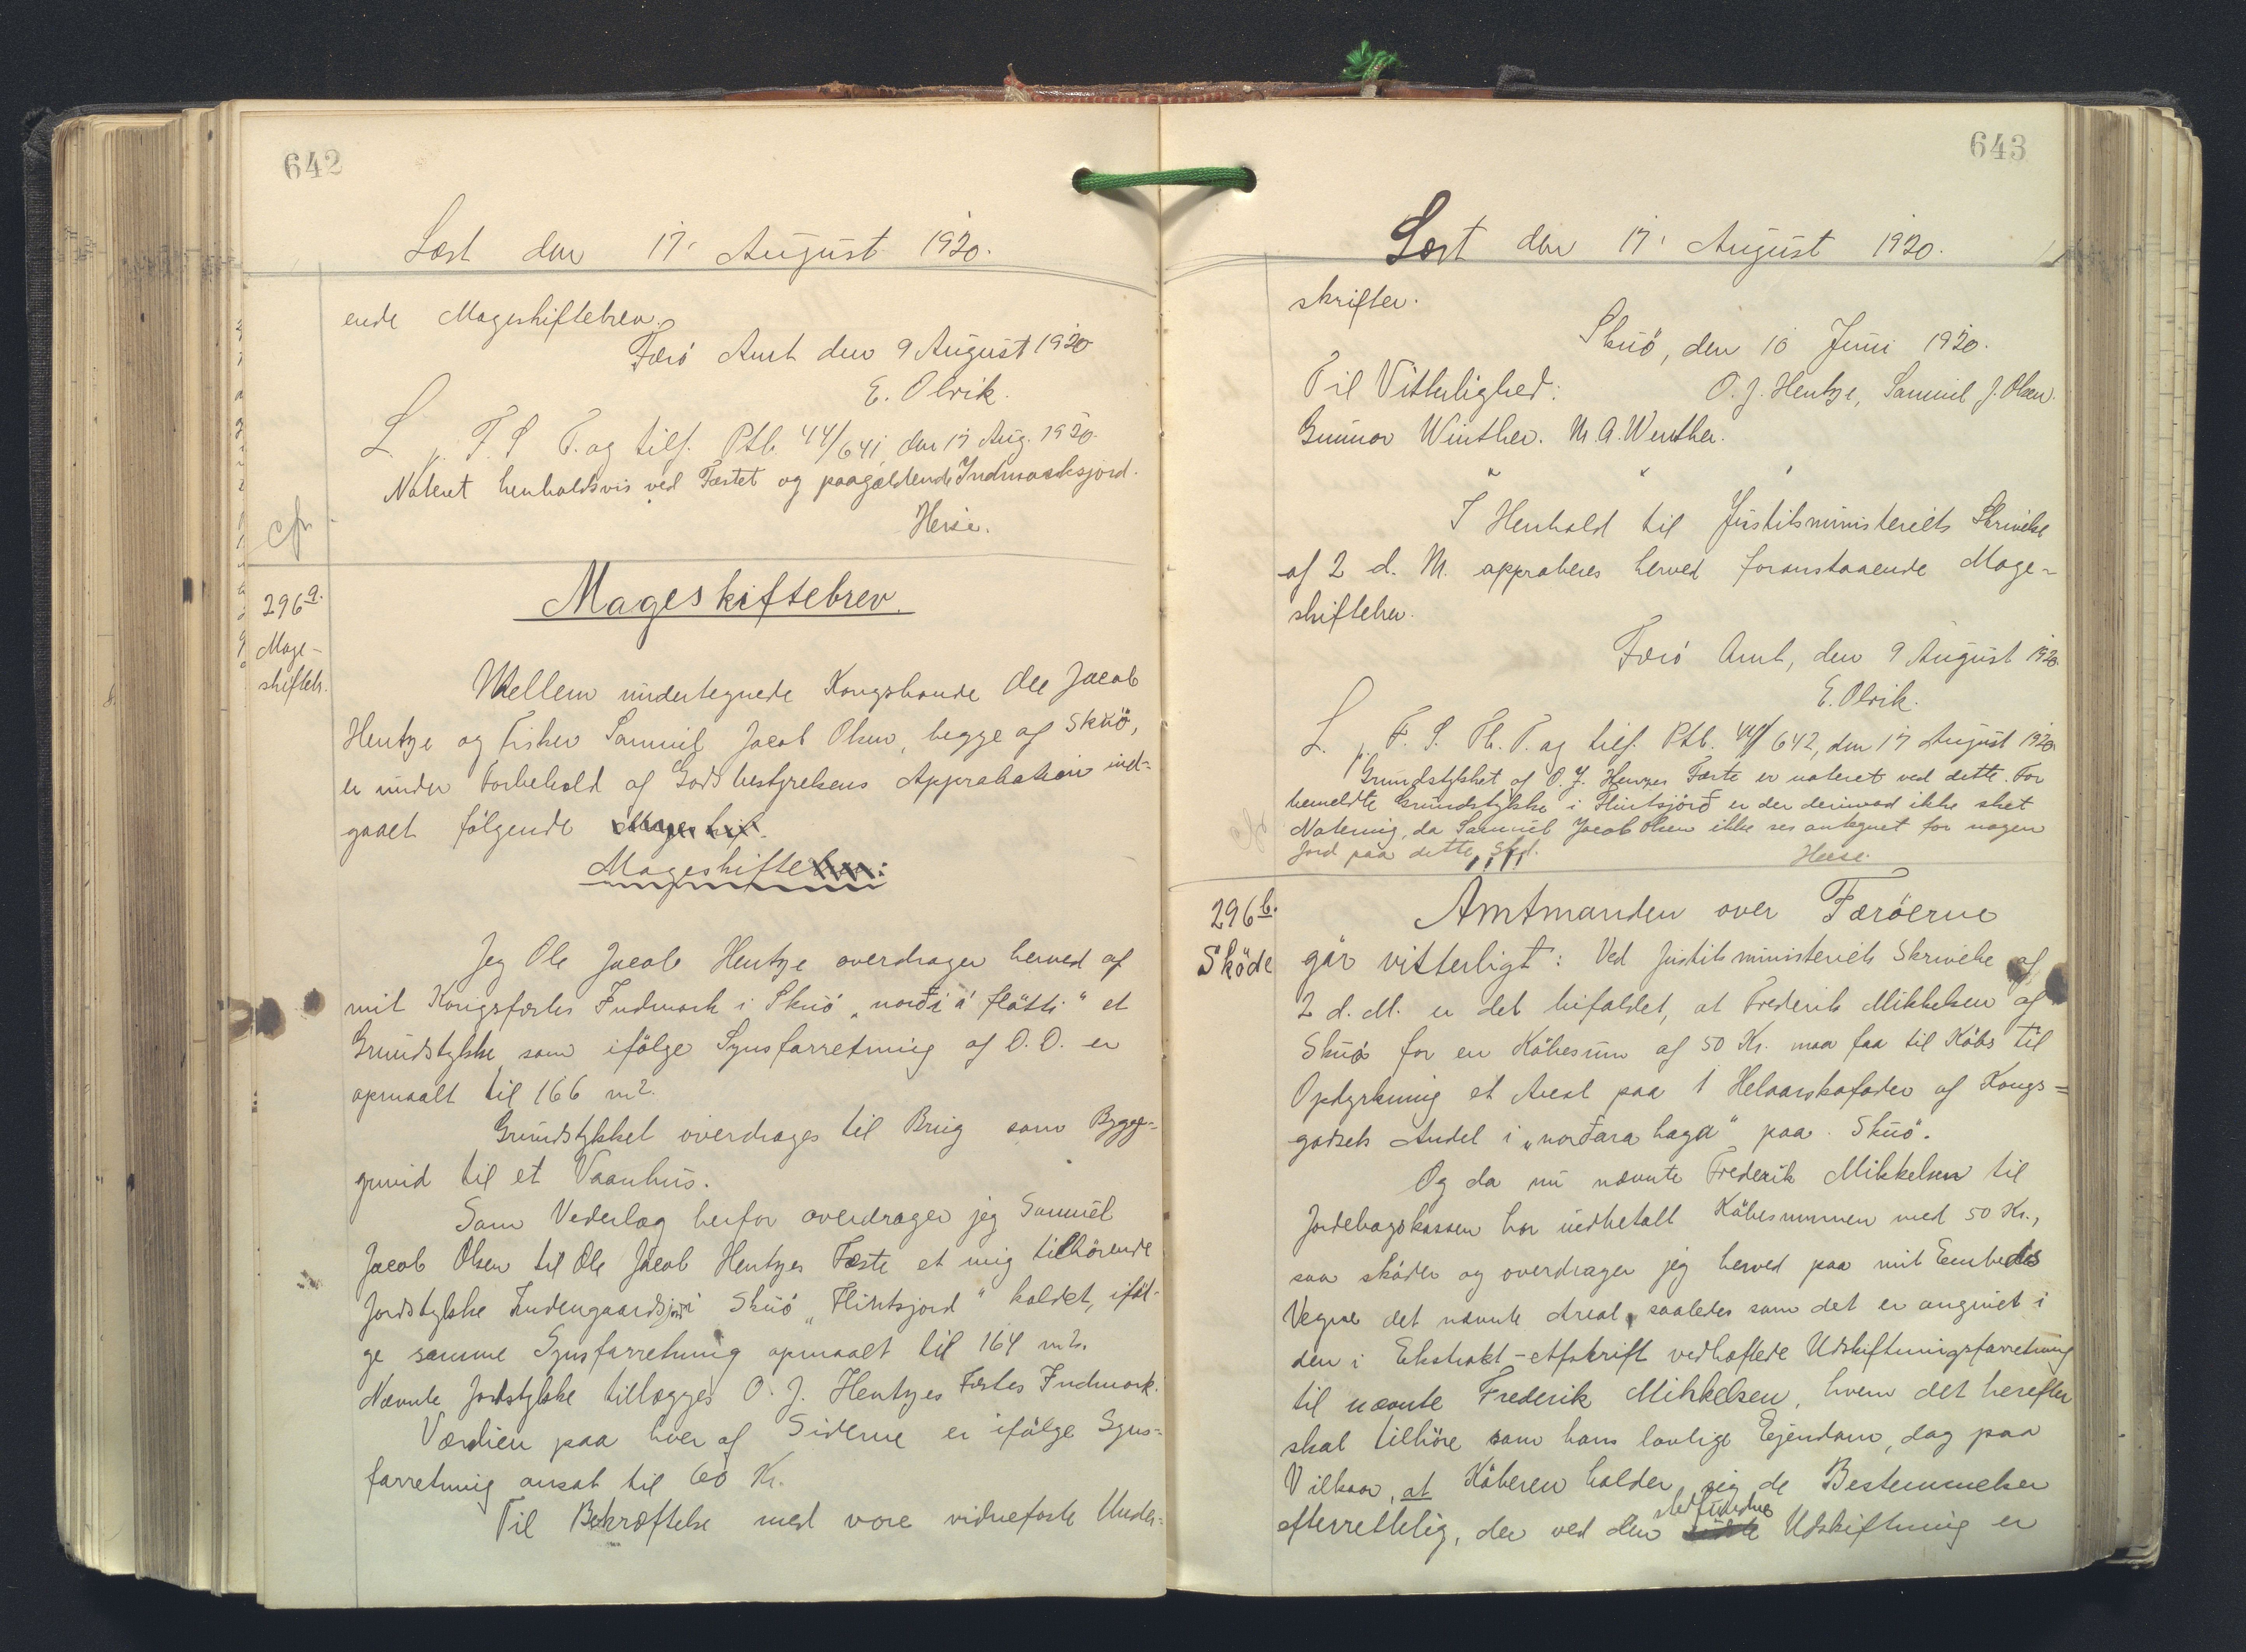 642
Læst den 17' August 1920.
ende Mageskiftebrev.
Færö Amt den 9 August 1920
E. Olrik.
L. p. F. S. T. og tilf. Ptb. 44/641, den 17 Aug. 1920.
Noteret henholdsvis ved Fæstet og paagældende Indmarksjord.
cfr
296a.
Mage-
skifteb.
Mageskiftebrev.
Mellem undertegnede Kongsbonde Ole Jacob
Hentze og Fisker Samuel Jacob Olsen, begge af Skuö,
er under Forbehold af Godsbestyrelsens Approbation ind-
gaaet fölgende
Mageskifte
Jeg Ole Jacob Hentze overdrager herved af
mit Kongsfæstes Indmark i Skuö „norði á fløtti" et
Grundstykke som ifölge Synsforretning af D. D. er
opmaalt til 166 m2.
Grundstykket overdrages til Brug som Bygge-
grund til et Vaanhus.
Som Vederlag herfor overdrager jeg Samuel
Jacob Olsen til Ole Jacob Hentzes Fæste et mig tilhörende
Jordstykke Indengaardsjord i Skuö „Flintsjord" kaldet, iföl-
ge samme Synsforretning opmaalt til 164 m2.
Nævnte Jordstykke tillægges O. J. Hentzes Fæstes Indmark.
Værdien paa hver af Siderne er ifölge Syns-
forretning ansat til 60 Kr.
Til Bekræftelse med vore vidnefaste Under-
643
Læst den 17' August 1920.
skrifter.
Skuö, den 10 Juni 1920.
Til Vitterlighed: O. J. Hentze, Samuel J. Olsen.
Gunnar Winther. M. A. Winther.
" " "
I Henhold til Justitsministeriets Skrivelse
af 2 d. M. approberes herved foranstaaende Mage-
skiftebrev.
Færö Amt, den 9 August 1920.
E. Olrik.
L. p. F. S. Th. T. og tilf. Ptb. 44/642, den 17 August 1920
Grundstykket af O. J. Henzes Fæste er noteret ved dette. For
bemeldte Grundstykke i Flintsjörð er der derimod ikke sket
Notering, da Samuel Jacob Olsen ikke ses antegnet for nogen
Jord paa dette Sted.
cfr
296b.
Sköde
Amtmanden over Færöerne
gör vitterligt: Ved Justitsministeriets Skrivelse af
2 d. M. er det bifaldet, at Frederik Mikkelsen af
Skuö for en Köbesum af 50 Kr. maa faa til Köbs til
Opdyrkning et Areal paa 1 Helaarskofoder af Kongs-
godsets Andel i „norðara haga" paa Skuö.
Og da nu nævnte Frederik Mikkelsen til
Jordebogskassen har indbetalt Köbesummen med 50 Kr.,
saa sköder og overdrager jeg herved paa mit Embedes
Vegne det nævnte Areal, saaledes som det er angivet i
den i Ekstrakt-Afskrift vedhæftede Udskiftningsforretning
til nævnte Frederik Mikkelsen, hvem det herefter
skal tilhöre som hans lovlige Ejendom, dog paa
Vilkaar, at Köberen holder sig de Bestemmelser
efterrettelig, der ved den stedfundne Udskiftning er